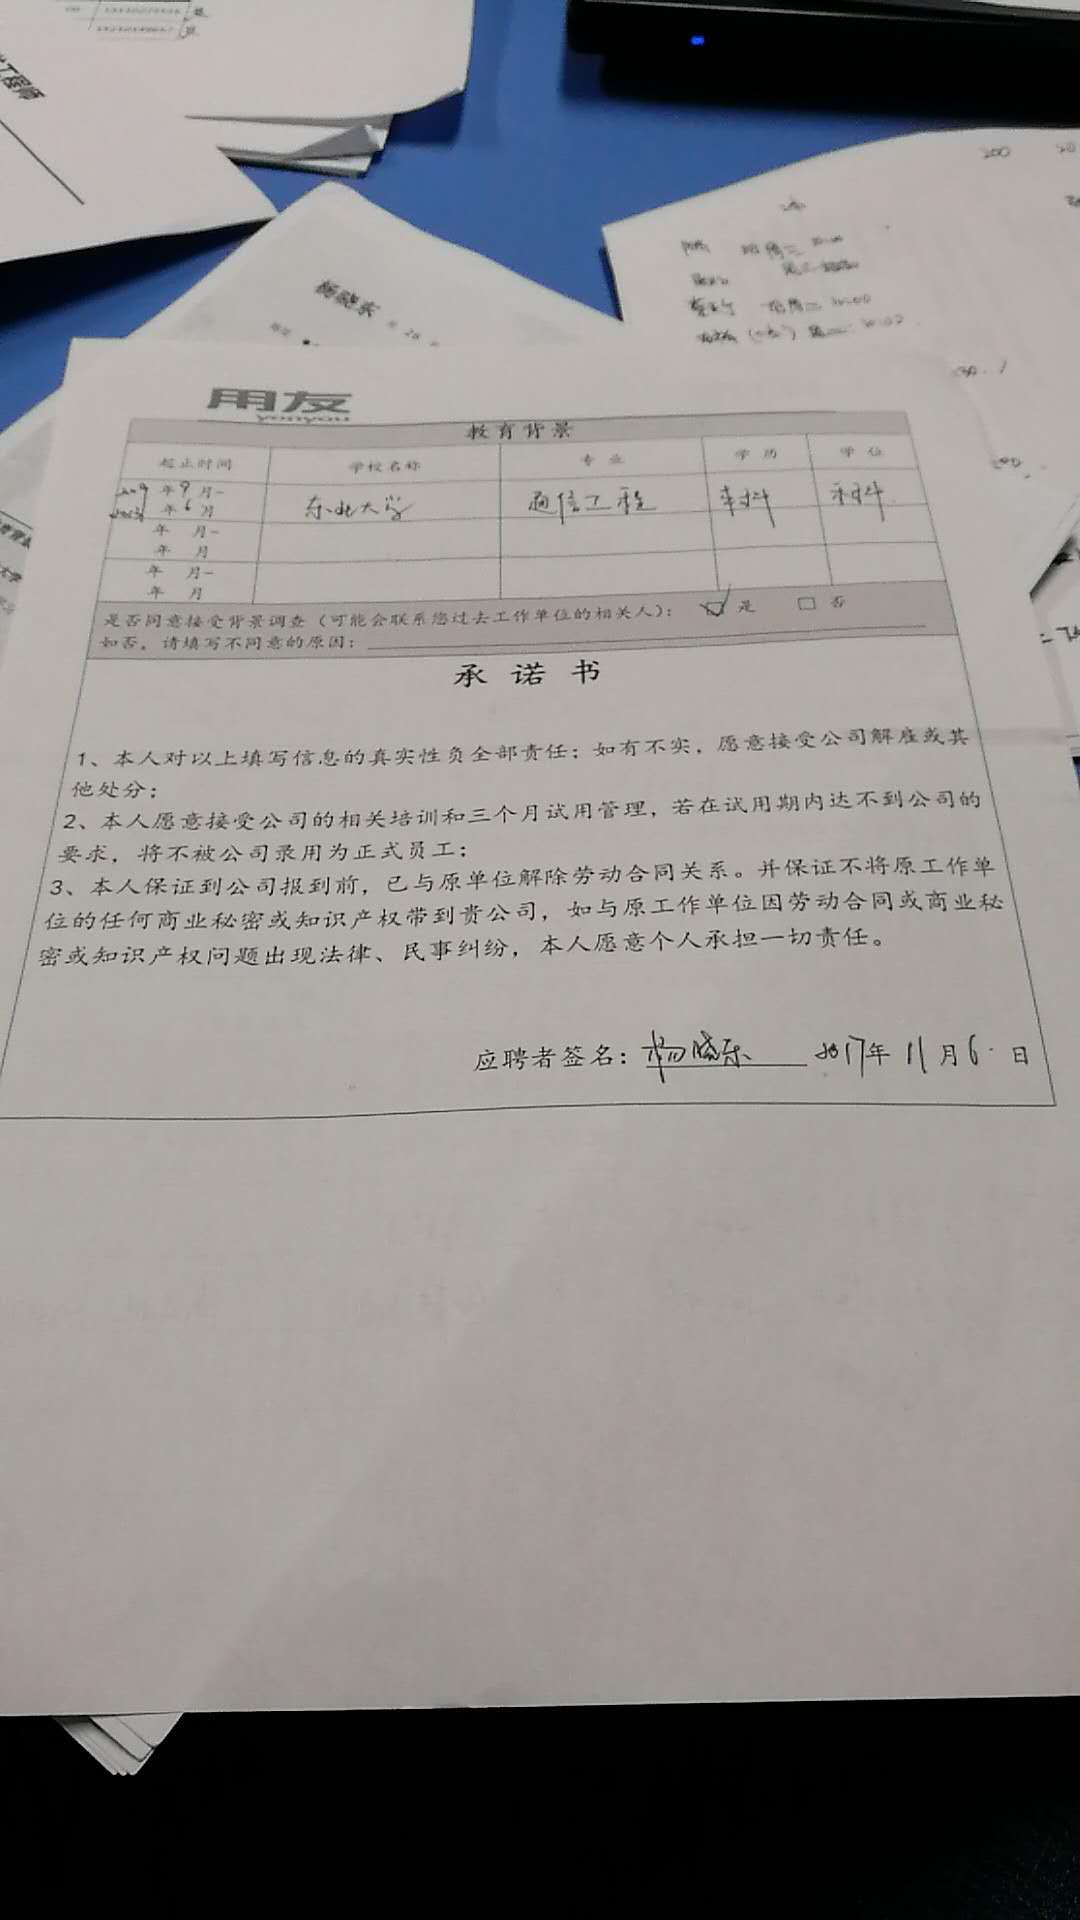 工程师
杨晓东
用友
yonyou
教育背景
起止时间 学校名称 专业 学历 学位
年9月- 东北大学 通信工程 本科 本科
年6月
年 月-
年 月
年 月-
年 月
是否同意接受背景调查（可能会联系您过去工作单位的相关人）： 是 □ 否
如否，请填写不同意的原因：
承诺书
1、本人对以上填写信息的真实性负全部责任；如有不实，愿意接受公司解雇或其
他处分；
2、本人愿意接受公司的相关培训和三个月试用管理，若在试用期内达不到公司的
要求，将不被公司录用为正式员工；
3、本人保证到公司报到前，已与原单位解除劳动合同关系。并保证不将原工作单
位的任何商业秘密或知识产权带到贵公司，如与原工作单位因劳动合同或商业秘
密或知识产权问题出现法律、民事纠纷，本人愿意个人承担一切责任。
应聘者签名：杨晓东 2017年11月6日
200